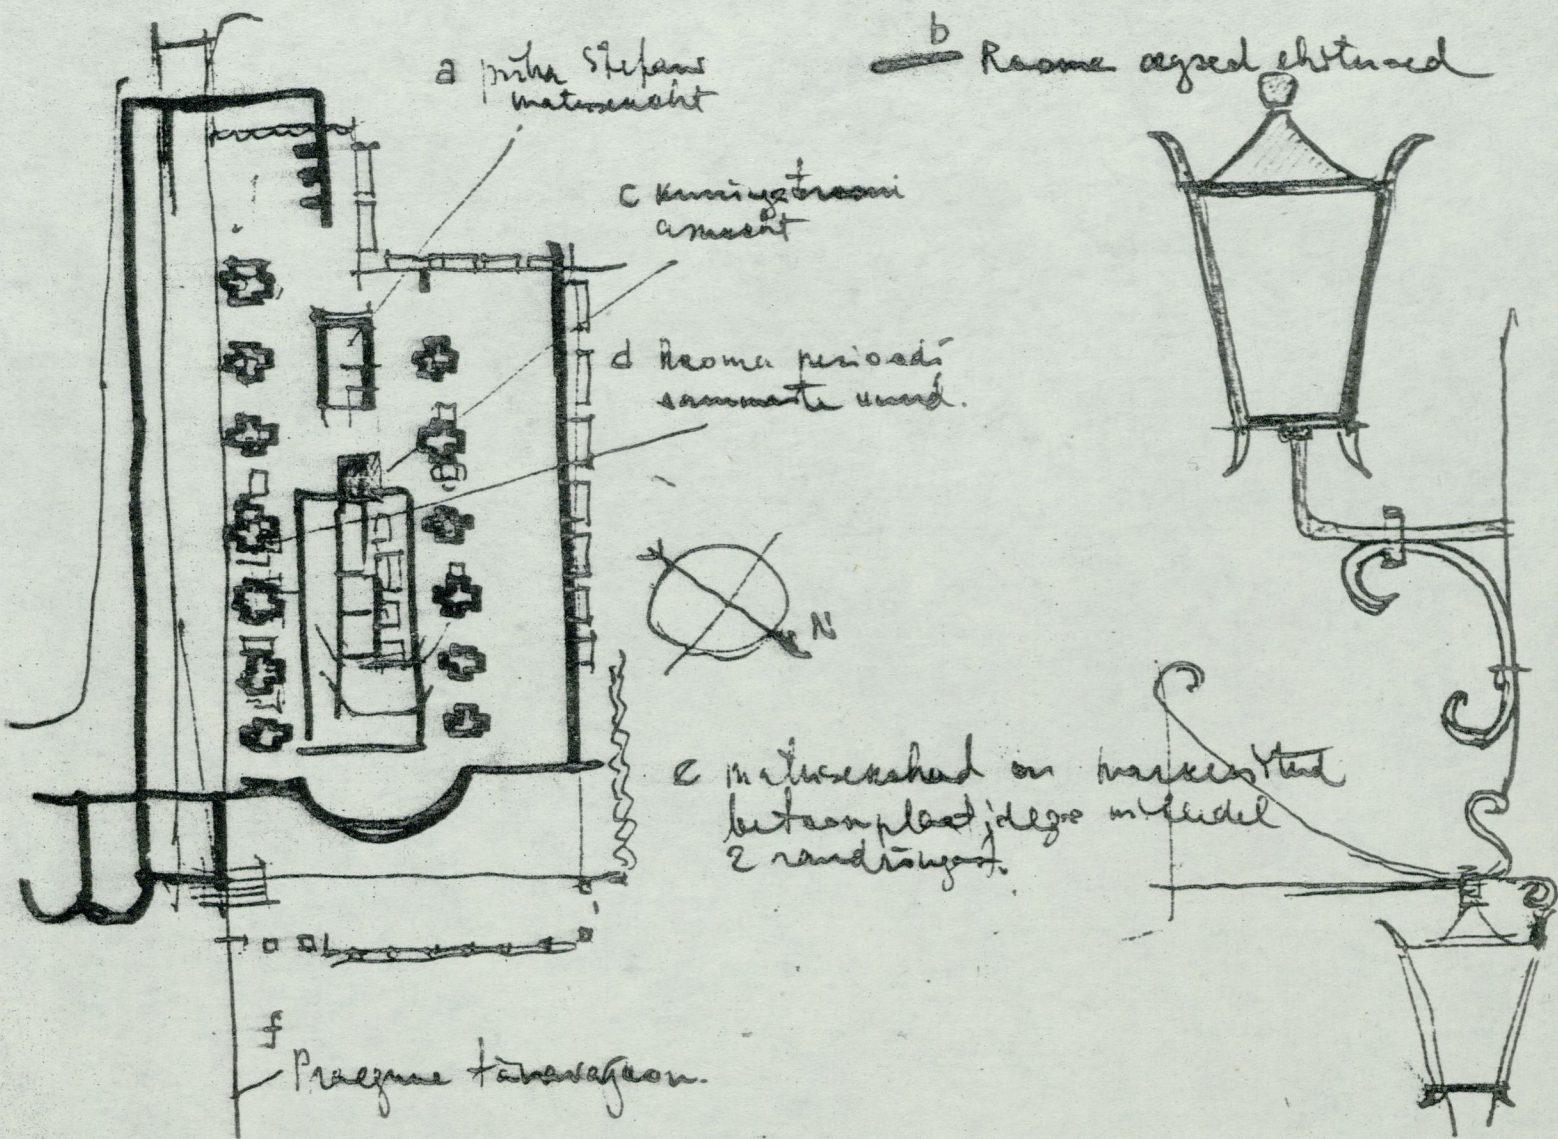 a püha Stefani
matusekoht
b Rooma aegsed ehitused
c kuningatrooni
asukoht
d Rooma perioodi
sammaste
N
e matusekohad on markeeritud
betoonplaatidega milledel
2 randrõngast.
f
Praegune tänavajoon.